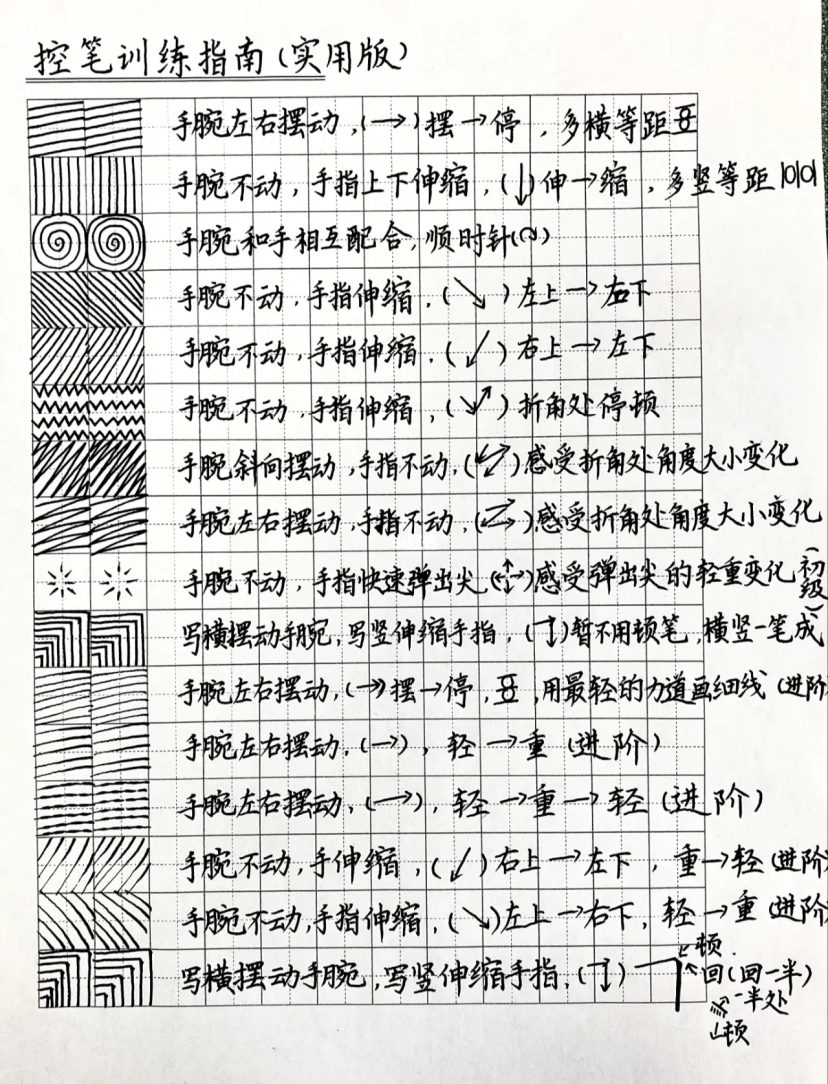 控笔训练指南(实用版)
手腕左右摆动,(→)摆→停,多横等距
手腕不动,手指上下伸缩,(↓)伸→缩,多竖等距
手腕和手相互配合,顺时针
手腕不动,手指伸缩,(↘)左上→右下
手腕不动,手指伸缩,(↙)右上→左下
手腕不动,手指伸缩,(↘↗)折角处停顿
手腕斜向摆动,手指不动,感受折角处角度大小变化
手腕左右摆动,手指不动,感受折角处角度大小变化
手腕不动,手指快速弹出尖,感受弹出尖的轻重变化(初级)
写横摆动手腕,写竖伸缩手指,暂不用顿笔,横竖一笔成
手腕左右摆动,(→)摆→停,用最轻的力道画细线(进阶
手腕左右摆动,(→),轻→重(进阶)
手腕左右摆动,(→),轻→重→轻(进阶)
手腕不动,手伸缩,(↙)右上→左下,重→轻(进阶)
手腕不动,手指伸缩,(↘)左上→右下,轻→重(进阶
写横摆动手腕,写竖伸缩手指,
顿
回(回一半)
一半处
顿